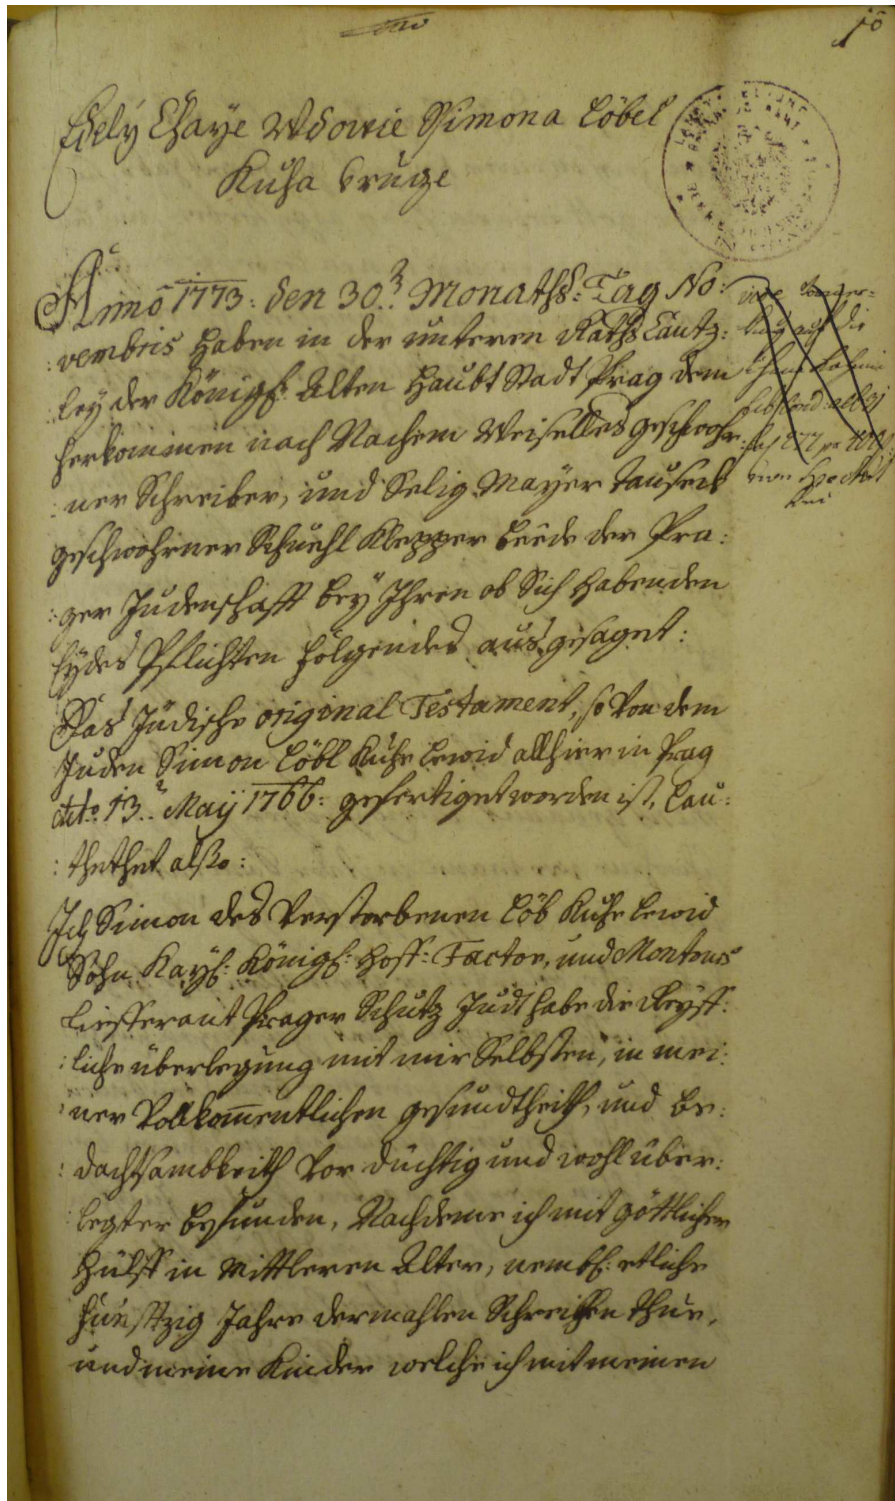 10
Edely Chaye Wdowie Simona Löbel
Kuha druge
Anno 1773: den 30.ͭ Monaths-Tag No:
:vembris haben in der unteren Raths Cantz:
:ley der Königl: Alten Haubt Stadt Prag dem
herkommen nach Nachem Weiselles geschwohr:
:ner Schreiber, und Selig Mayer Tauseck
geschwohrner Schuehl Klepper beede der Pra:
:ger Judenschafft bey Ihren ob Sich habenden
Eydes Pflichten folgendes ausgesaget:
Das Jüdische original Testament, so von dem
Juden Simon Löbl Kuhe Lewid allhier in Prag
dto 13. May 1766: gefertiget worden ist, lau:
:thethet also:
Ich Simon des Verstorbenen Löb Kuhe Lewid
Sohn Kayl: Königl: Hoff: Factor, und Montours
Liefferant Prager Schutz Judt habe die Reyff:
:liche überlegung mit mir Selbsten, in mei:
:ner Vollkomentlichen gesundtheith, und be:
:dachtsambkeith vor düchtig und wohl über:
:legter befunden, Nachdeme ich mit göttlicher
Hülff in Mittleren Alter, nembl: etliche
funffzig Jahre dermahlen Schreiben thue,
und meine Kinder welche ich mit meinen